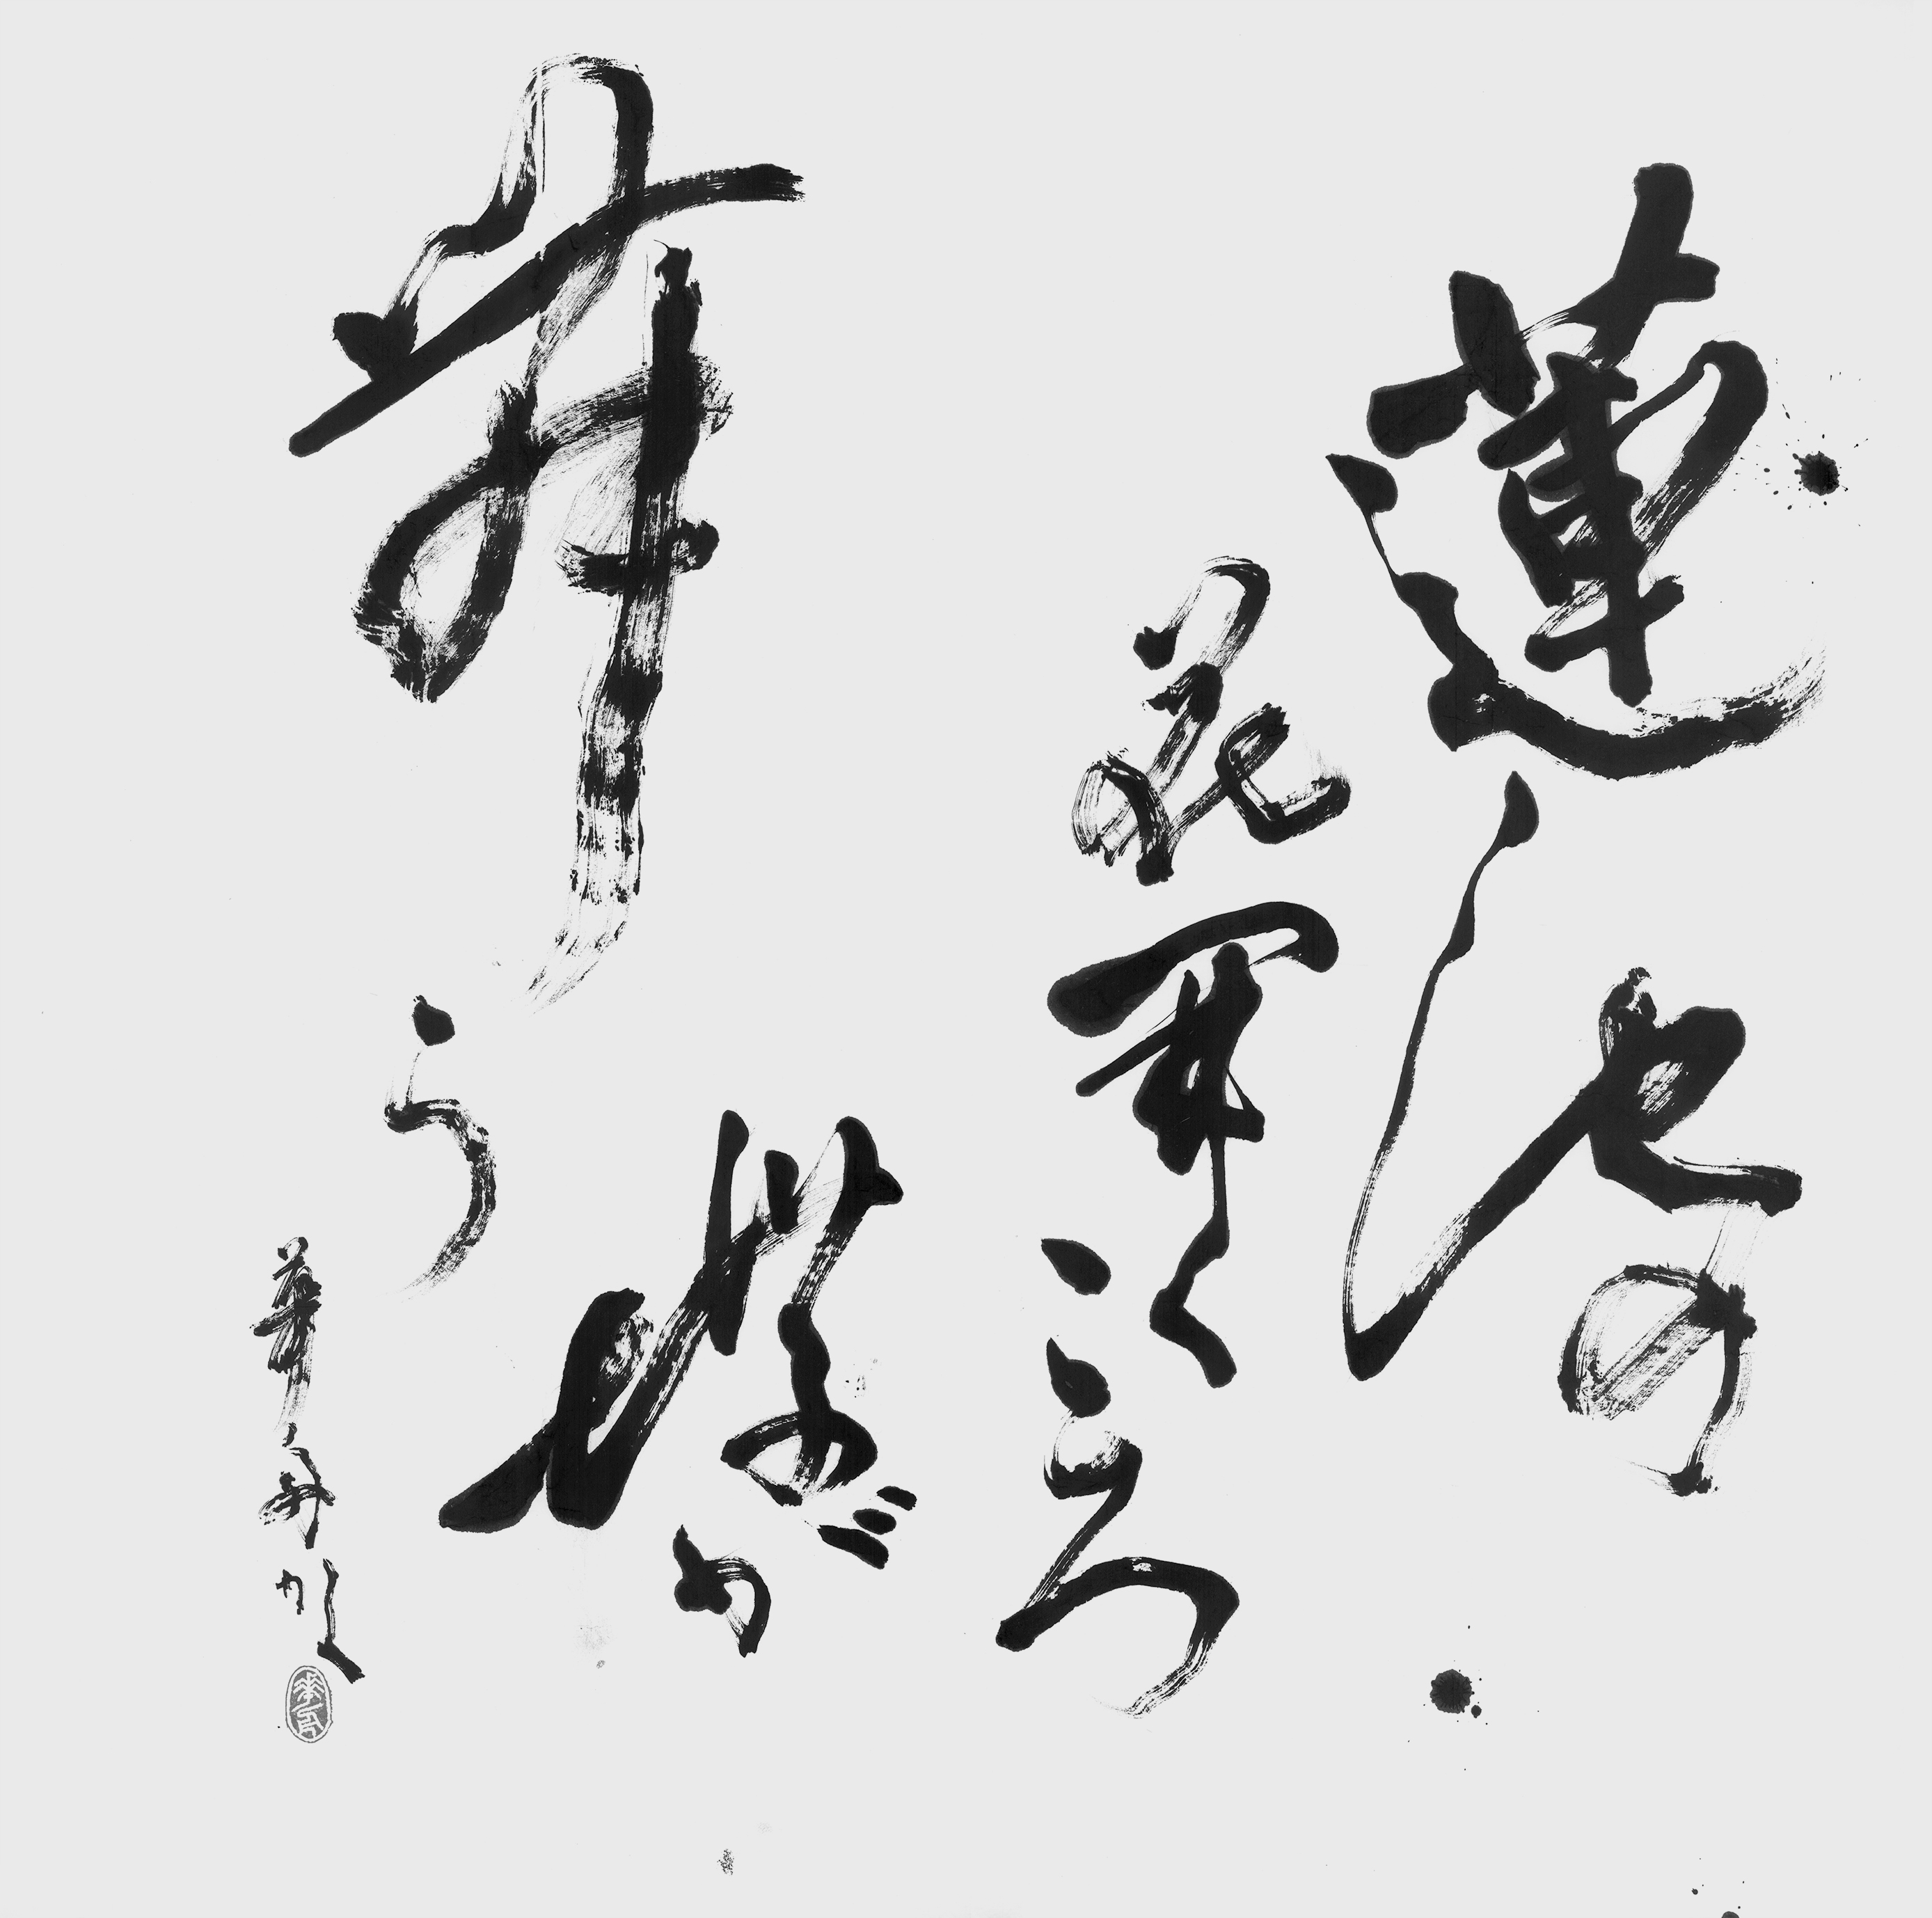 蓮池の
花開くころ
蝶が
舞う
華舟